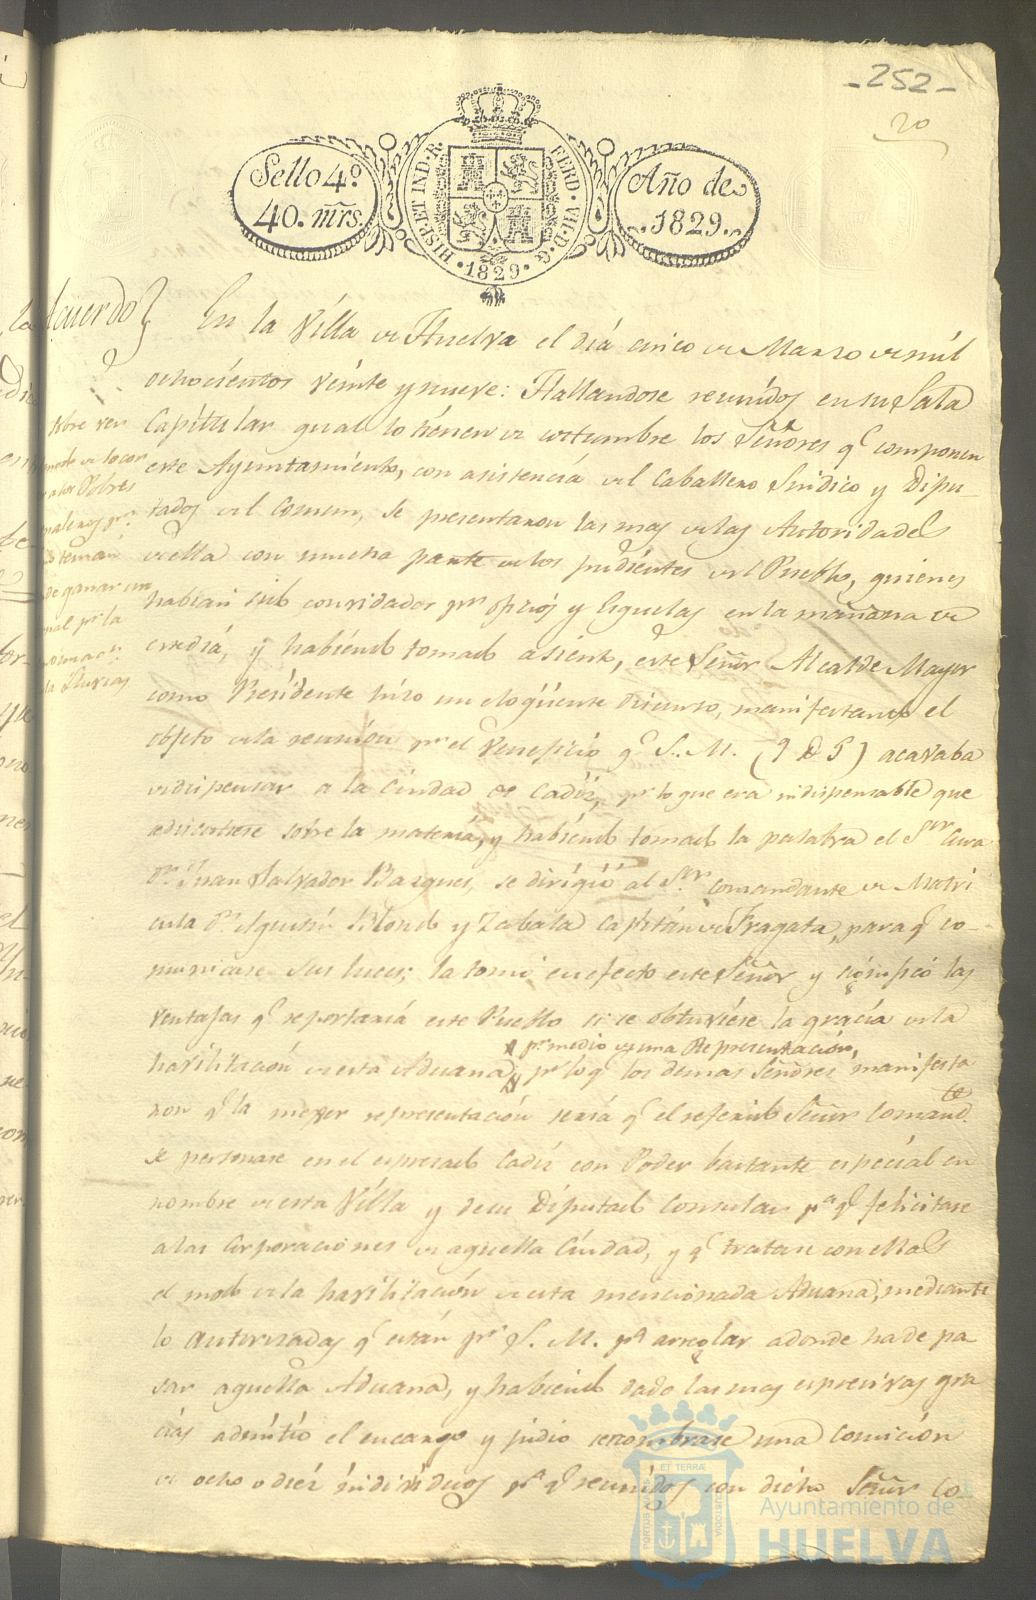 -252-
20
Sello 4.º
40. mrs.
HISP. ET IND. R. FERD. VII. D. G. 1829
Año de
1829.
Acuerdo
En la Villa de Huelva el día cinco de Marzo de mil
ochocientos veinte y nueve: Hallandose reunidos en su Sala
Capitular qual lo tienen de costumbre los Señores q.e componen
este Ayuntamiento, con asistencia del Caballero Sindico y Dipu-
tados del Comun, se presentaron las mas de las Autoridades
de ella con mucha parte de los pudientes del Pueblo, quienes
habian sido convidados p.r oficios y Esquelas en la mañana de
este dia, y habiendo tomado asiento, este Señor Alcalde Mayor
como Presidente hizo un eloqüente discurso, manifestando el
objeto de la reunion p.r el veneficio q.e S. M. (Q D G) acavaba
de dispensar a la Ciudad de Cadiz, p.r lo que era indispensable que
se discutiese sobre la materia, y habiendo tomado la palabra el S.or Cura
D.n Juan Salvador Bazquez, se dirigió al S.or Comandante de Matri
cula D.n Agustin Blondo y Zabala Capitan de Fragata, para q.e co-
municase sus luces; la tomó en efecto este Señor y significó las
ventajas q.e reportaria este Pueblo si se obtuviese la gracia de la
p.r medio de una Representacion,
havilitacion de esta Aduana, p.r lo q.e los demas Señores manifesta
ron q.e la mejor representacion seria q.e el referido Señor Comand.te
se personase en el espresado Cadiz con Poder bastante especial en
nombre de esta Villa y de su Diputado Consular p.a q.e felicitase
a las Corporaciones de aquella Ciudad, y q.e tratase con ellas
el modo de la havilitacion de esta mencionada Aduana, mediante
lo autorizadas q.e están p.r S. M. p.a arreglar adonde ha de pa
sar aquella Aduana, y habiendo dado las mas espresivas gra
cias admitió el encargo y pidió se nombrase una Comicion
de ocho o diez individuos p.a q.e reunidos con dicho Señor Co
Sobre
Pobres
p.r
de ganar un
p.r la
la Lluvias
PORTUS MARIS ET TERRÆ CUSTODIA
Ayuntamiento de
HUELVA